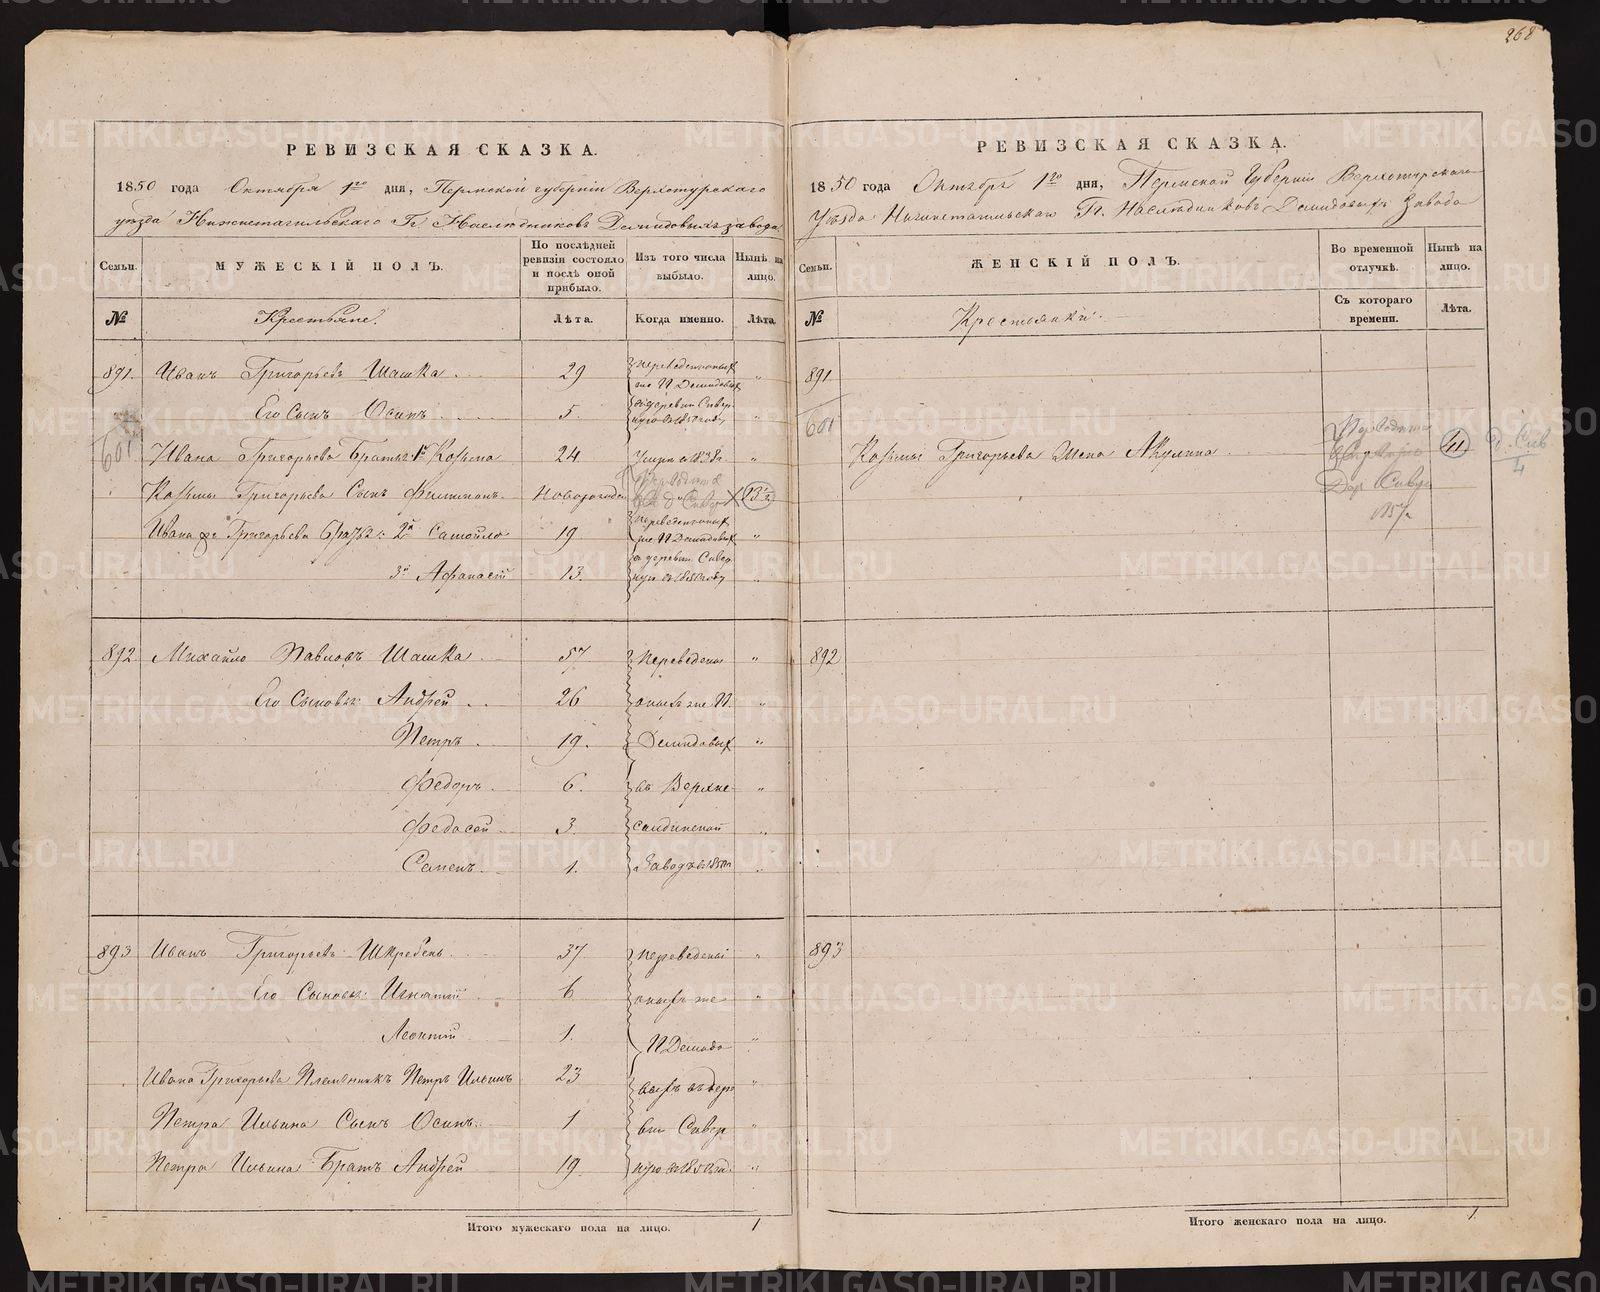 268
РЕВИЗСКАЯ СКАЗКА.
1850 года Октября 1го дня, Пермской губерніи Верхотурскаго
уѣзда Нижнетагильскаго Гг. Наслѣдниковъ Демидовыхъ завода
Семьи.
МУЖЕСКІЙ ПОЛЪ.
По послѣдней ревизіи состояло и послѣ оной прибыло.
Изъ того числа выбыло.
Нынѣ на лицо.
№
Крестьяне.
Лѣта.
Когда именно.
Лѣта.
891. Иванъ Григорьевъ Шашка 29 переведенъ оныхъ
же Г Демидовыхъ "
Его Сынъ Осипъ 5. въ деревни Север
ную въ 1850 году "
601
Ивана Григорьева Братья: 1й Козьма 24 Умеръ въ 1838г "
Козьмы Григорьева Сынъ Филипъ. Новорожден Д. Север 13½
Ивана же Григорьева Братья: 2й Самойло 19 переведены оныхъ
же Г Демидовыхъ "
3й Афанасій 13. въ деревни Север
ную въ 1850 году "
892. Михайло Павловъ Шашка 57 Переведены "
Его Сыновья: Андрей 26 оныхъ же Г. "
Петръ 19. Демидовыхъ "
Федоръ 6. въ Верхне "
Федосей 3. салдинской "
Семенъ 1. Заводъ въ 1850 "
893 Иванъ Григорьевъ Шкребень 37 переведены "
Его Сыновья: Игнатій 6 оныхъ же "
Леонтій 1. Г Демидо "
Ивана Григорьева Племянникъ Петръ Ильинъ 23 выхъ въ дере "
Петра Ильина Сынъ Осипъ 1 вни Север "
Петра Ильина Братъ Андрей 19 ную въ 1850 год. "
Итого мужескаго пола на лицо. 1
РЕВИЗСКАЯ СКАЗКА.
1850 года Октября 1го дня, Пермской Губерніи Верхотурскаго
Уѣзда Нижнетагильскаго Гг. Наслѣдниковъ Демидовыхъ Завода
Семьи.
ЖЕНСКІЙ ПОЛЪ.
Во временной отлучкѣ.
Нынѣ на лицо.
№
Крестьянки.
Съ котораго времени.
Лѣта.
891
601
Козьмы Григорьева Жена Акулина 41
892
893
Итого женскаго пола на лицо. 1.
METRIKI.GASO-URAL.RU